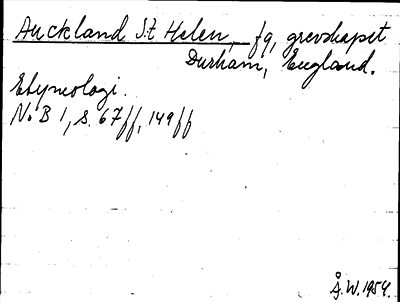 Auckland St Helen, fg, grevskapet
Durham, England.
Etymologi.
NoB 1, s. 67ff, 149ff
Å.W. 1954.